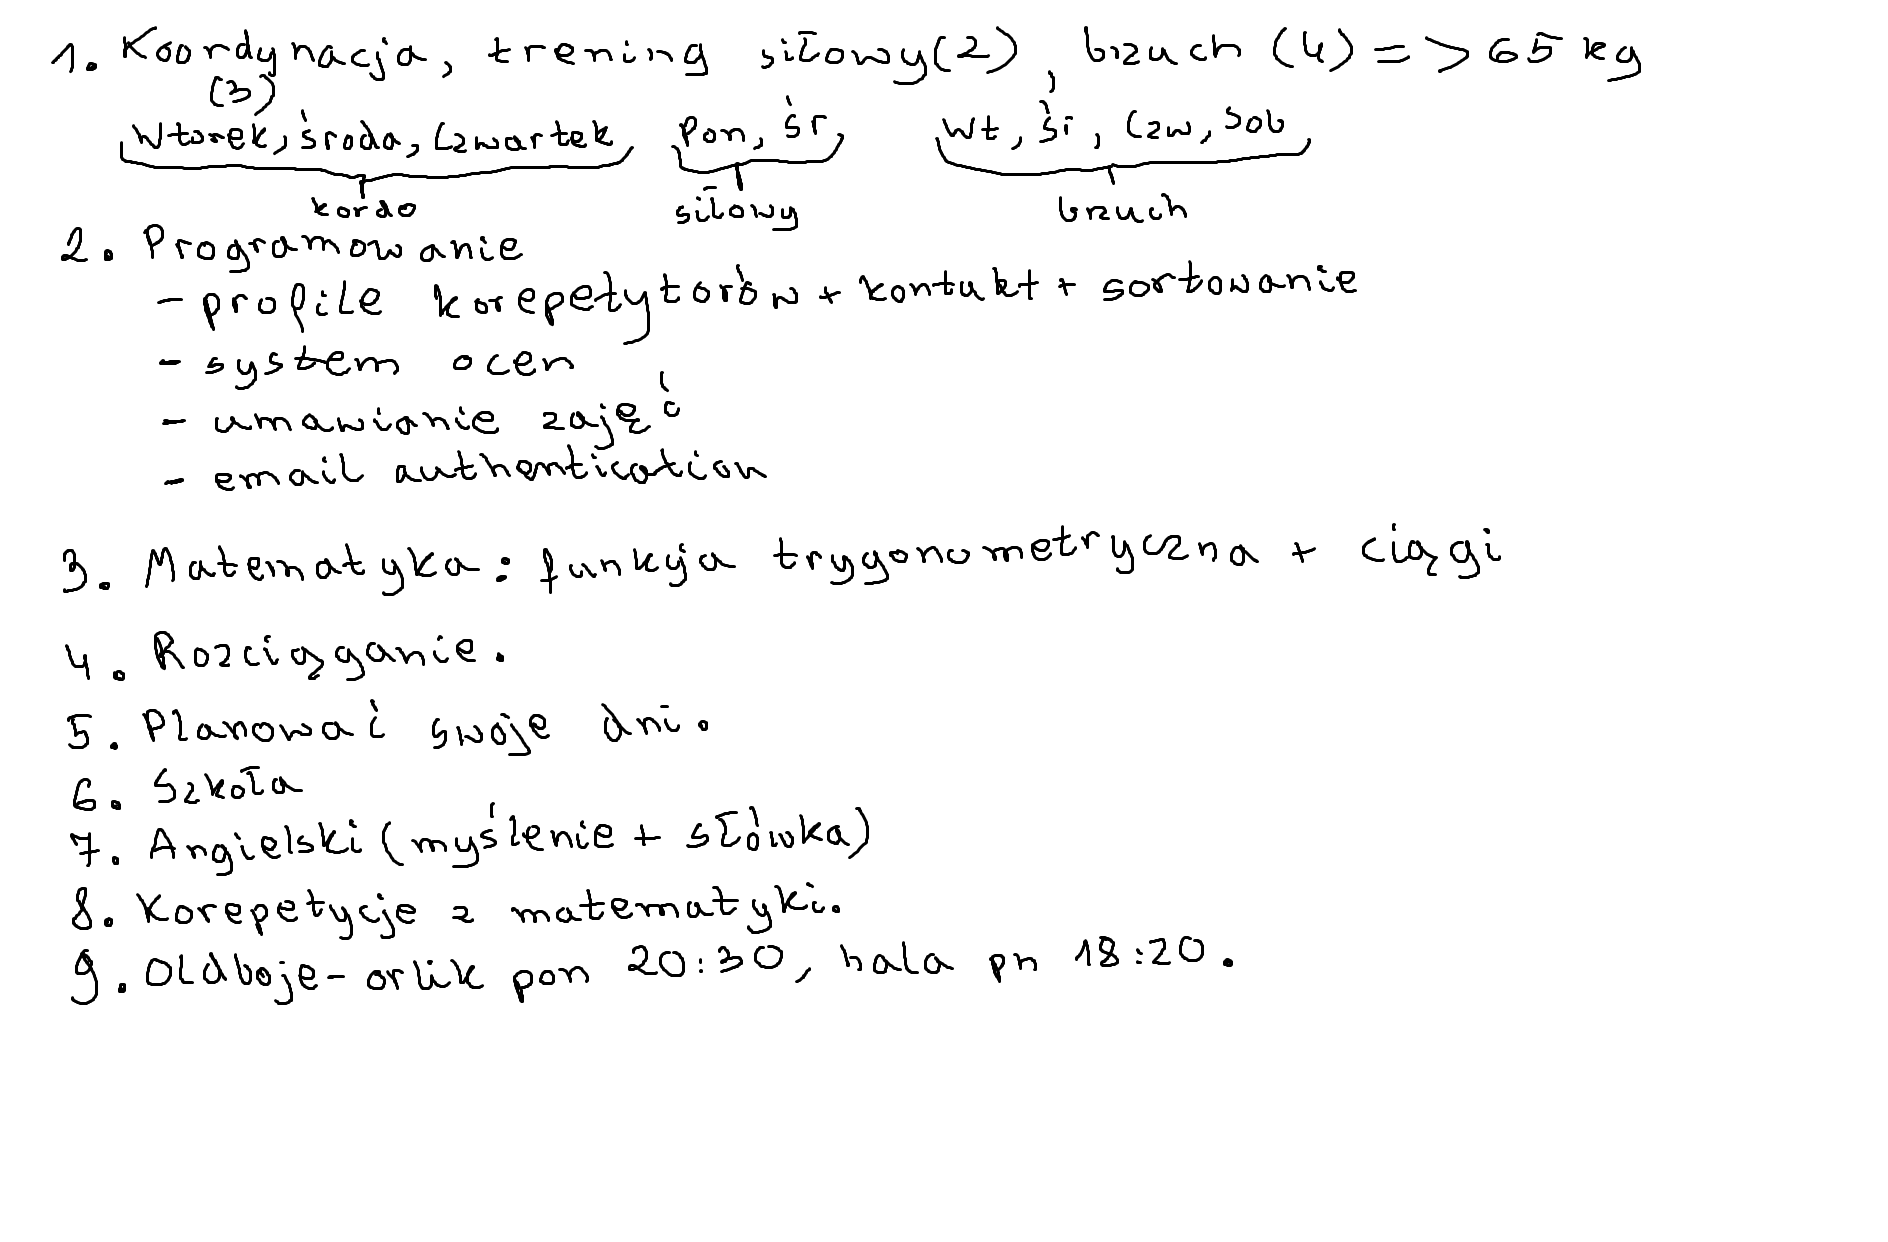 1. Koordynacja, trening siłowy(2), brzuch (4) => 65 kg
(3)
Wtorek, środa, Czwartek, Pon, śr, Wt, śr, Czw, Sob,
kordo siłowy brzuch
2. Programowanie
- profile korepetytorów + kontakt + sortowanie
- system ocen
- umawianie zajęć
- email authentication
3. Matematyka: funkcja trygonometryczna + ciągi
4. Rozciąganie.
5. Planować swoje dni.
6. Szkoła
7. Angielski (myślenie + słówka)
8. Korepetycje z matematyki.
9. Oldboje - orlik pon 20:30, hala pn 18:20.